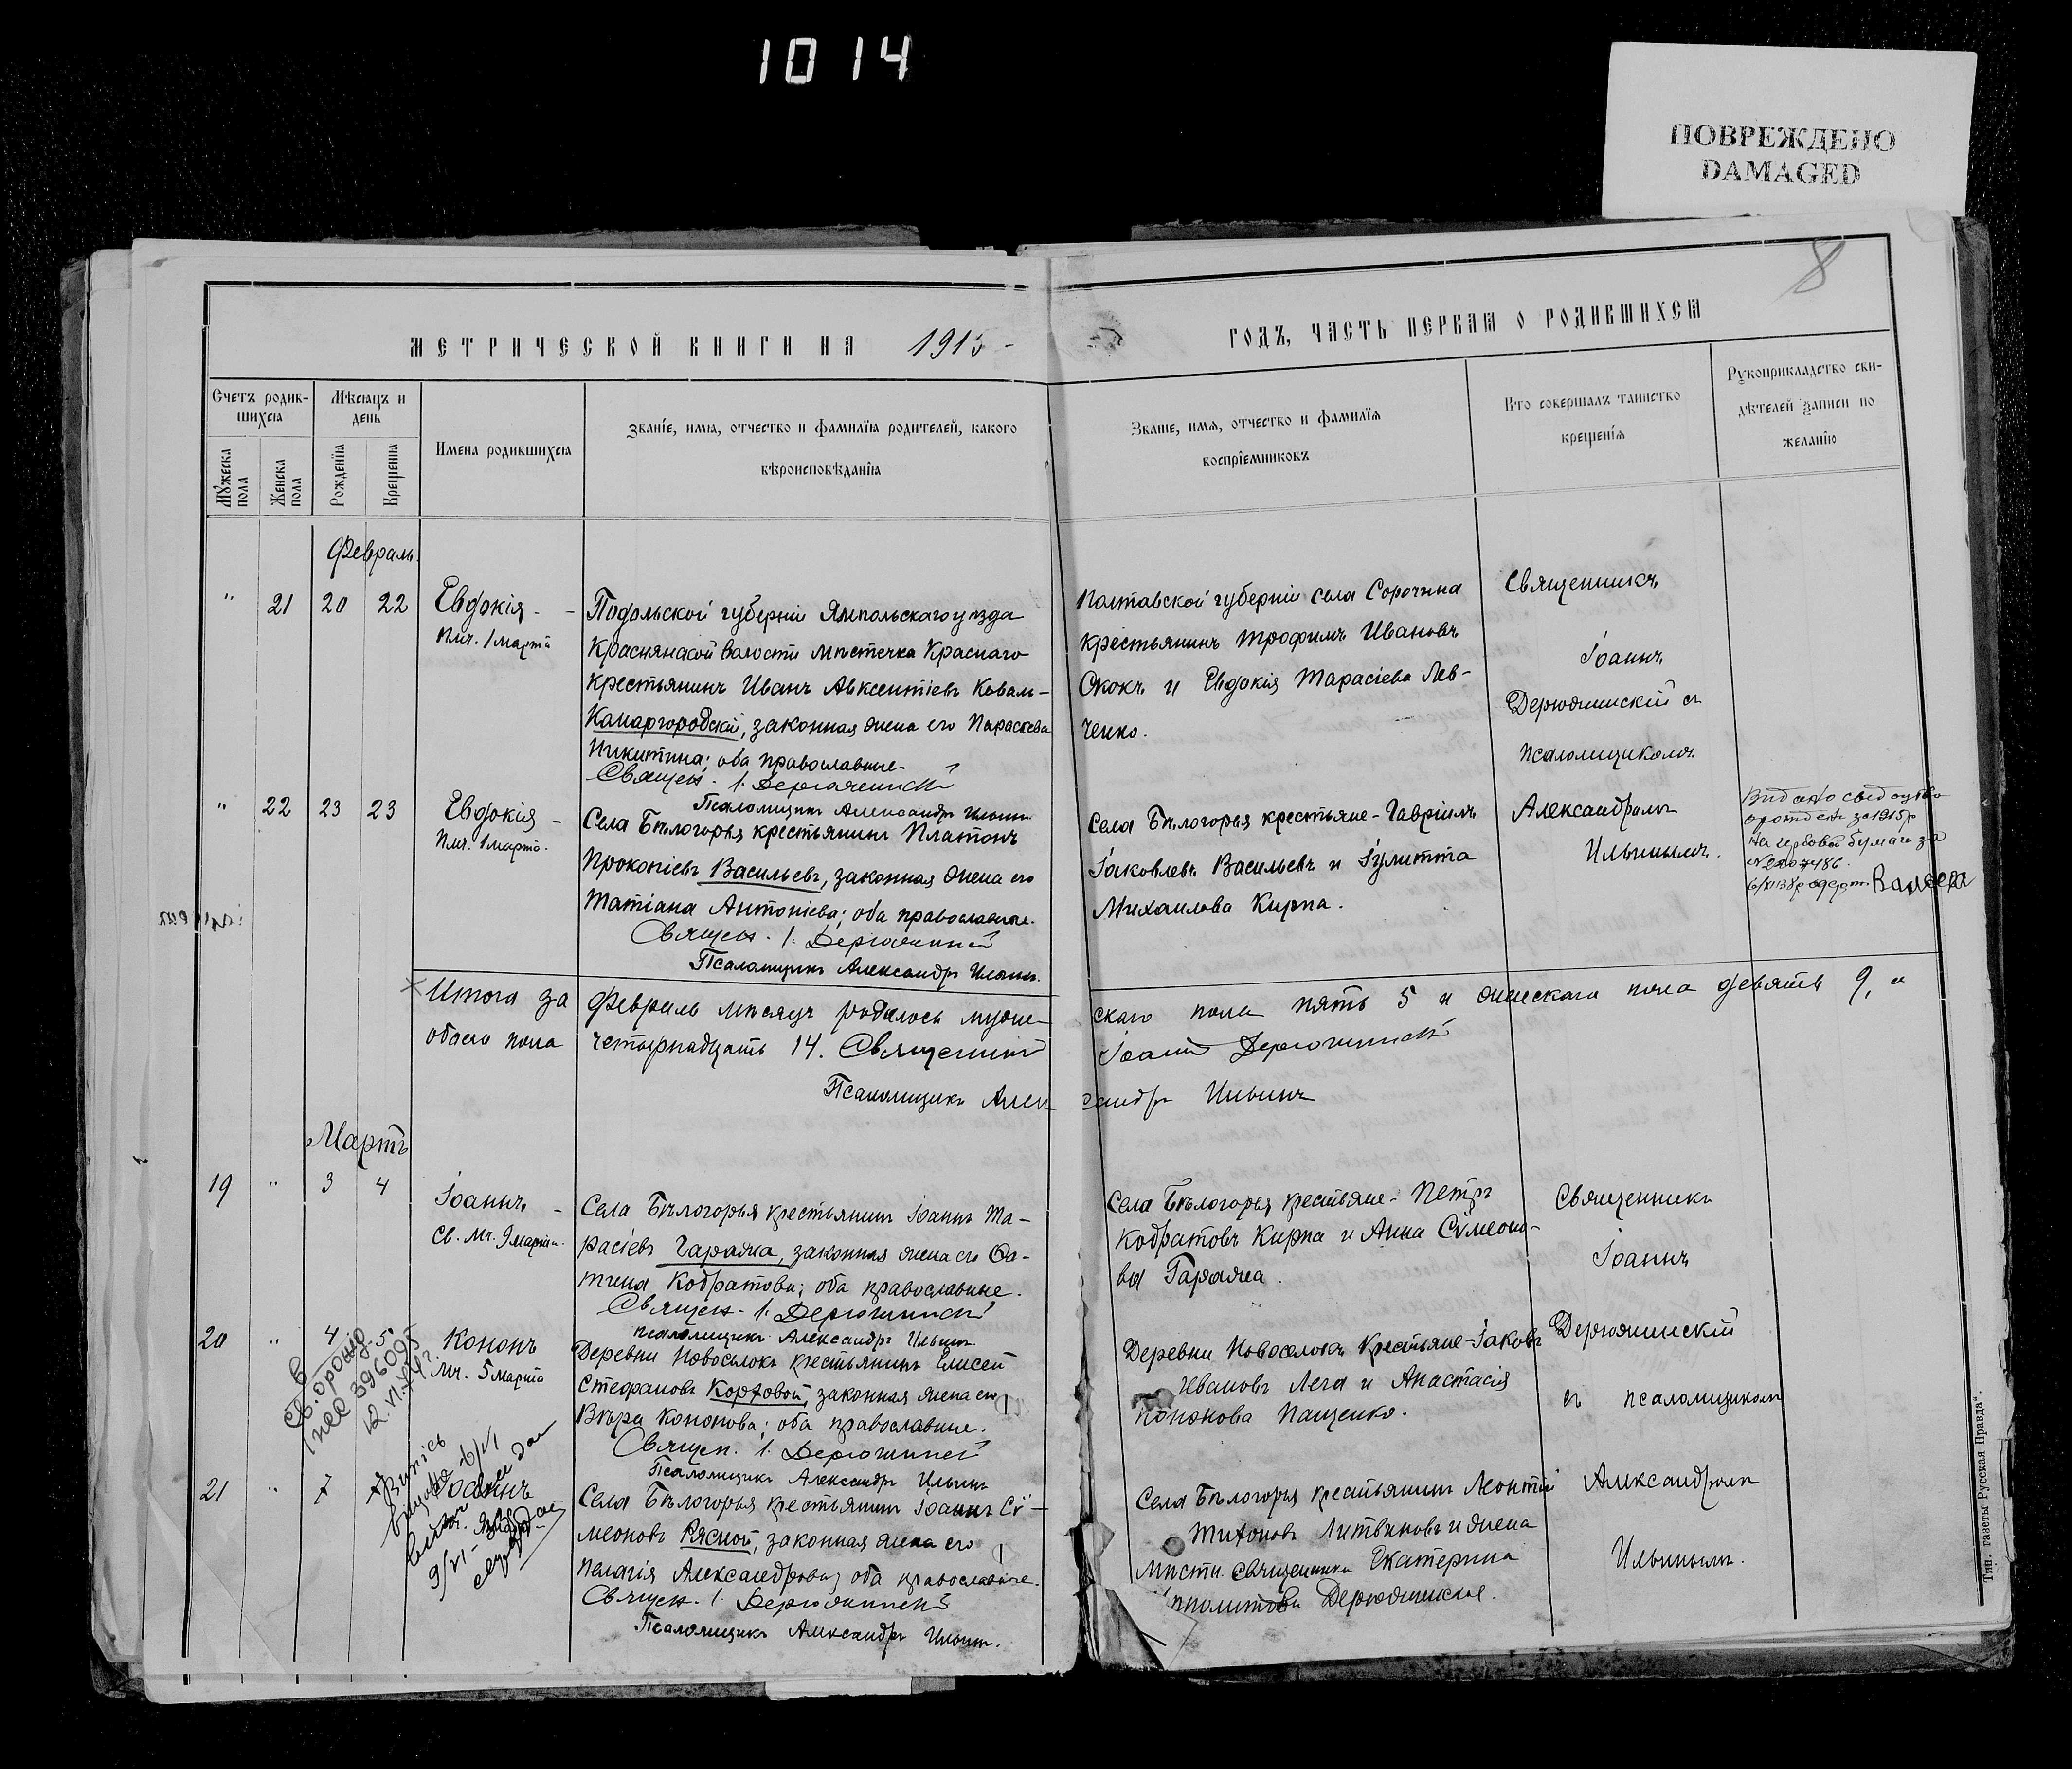 1014
ПОВРЕЖДЕНО
DAMAGED
8
МЕТРИЧЕСКОЙ КНИГИ НА 1915
ГОДЪ, ЧАСТЬ ПЕРВАЯ О РОДИВШИХСЯ
Счетъ родив-
шихся
Мужеска пола
Женска пола
Мѣсяцъ и
день
Рожденія
Крещенія
Имена родившихся
Званіе, имя, отчество и фамилія родителей, какого
вѣроисповѣданія
Званіе, имя, отчество и фамилія
воспріемниковъ
Кто совершалъ таинство
крещенія
Рукоприкладство сви-
дѣтелей записи по
желанію
Февраль
" 21 20 22
Евдокія
1 марта
Подольской губерніи Ямпольскаго уѣзда
Краснянской волости мѣстечка Краснаго
крестьянинъ Иванъ Авксентіевъ Коваль-
Комаргородскій, законная жена его Параскева
Никитина; оба православные.
Священ. І. Дерюжинскій
Псаломщикъ Александръ Ильинъ
Полтавской губерніи села Сорочина
крестьянинъ Трофимъ Ивановъ
и Евдокія Тарасіева Лев-
ченко.
Священникъ
Іоаннъ
Дерюжинскій съ
псаломщикомъ
" 22 23 23
Евдокія
1 марта.
Села Бѣлогорья крестьянинъ Платонъ
Прокопіевъ Васильевъ, законная жена его
Татіана Антоніева; оба православные.
Священ. І. Дерюжинскій
Псаломщикъ Александръ Ильинъ.
Села Бѣлогорья крестьяне - Гавріилъ
Іаковлевъ Васильевъ и Іулитта
Михаилова Кирпа.
Александромъ
Ильинымъ.
за 1915р
на гербовой
Итого за февраль мѣсяцъ родилось муже-
скаго пола пять 5 и женскаго пола девять 9, а
обоего пола четырнадцать 14. Священникъ
Іоаннъ Дерюжинскій
Псаломщикъ Алек
сандръ Ильинъ
Мартъ
19 " 3 4
Іоаннъ
Св. Мч. 9 марта.
Села Бѣлогорья крестьянинъ Іоаннъ Та-
расіевъ Гаража, законная жена его
Кодратова; оба православные.
Священ. І. Дерюжинскій
псаломщикъ Александръ Ильинъ
Села Бѣлогорья крестьяне - Петръ
Кодратовъ Кирпа и Анна Сѵмеоно-
ва Гаража.
Священникъ
Іоаннъ
20 " 4 5
Кононъ
Мч. 5 марта
396095
Деревни Новоселокъ крестьянинъ Елисей
Стефановъ Коржовой, законная жена его
Вѣра Кононова; оба православные.
Священ. І. Дерюжинскій
Псаломщикъ Александръ Ильинъ
Деревни Новоселокъ крестьяне - Іаковъ
Ивановъ Лега и Анастасія
Кононова Пащенко.
Дерюжинскій
съ псаломщикомъ
21 "
Іоаннъ
Села Бѣлогорья крестьянинъ Іоаннъ Сѵ-
меоновъ Рясной, законная жена его
Пелагія Александрова; оба православные.
Священ. І. Дерюжинскій
Псаломщикъ Александръ Ильинъ.
Села Бѣлогорья крестьянинъ Леонтій
Тихоновъ Литвиновъ и жена
мѣстн. священника Екатерина
Дерюжинская.
Александромъ
Ильинымъ.
Тип. газеты Русская Правда".